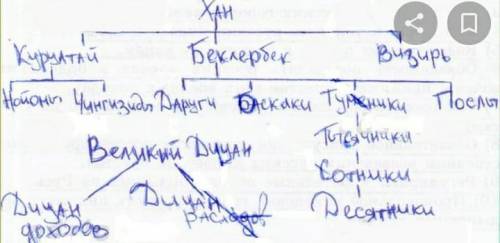 Хан
Курултай Беклербек Визирь
Нойоны Чингизиды Даруги Баскаки Туменики Послы
Тысячники
Великий Диван
Сотники
Диван Диван Десятники
доходов расходов